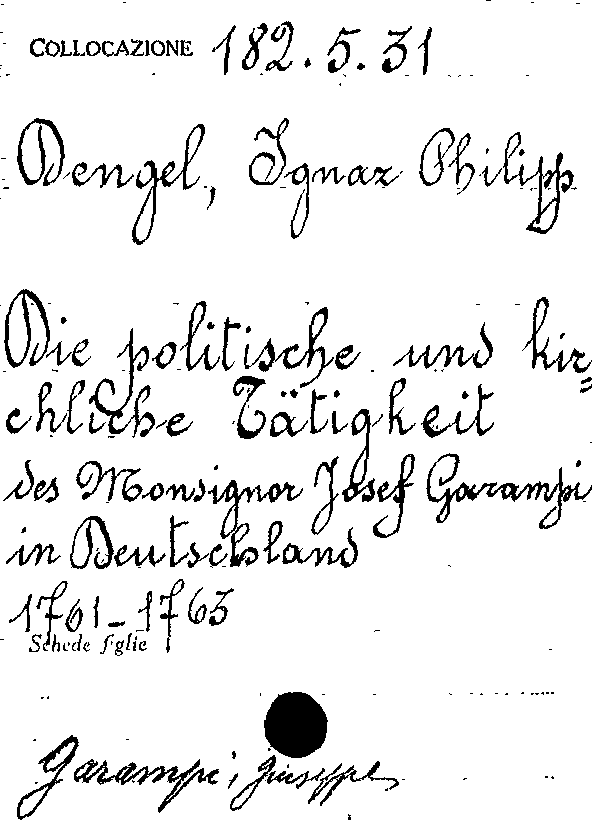 COLLOCAZIONE 182.5.31
Dengel, Ignaz Philipp
Die politische und kir=
chliche Tätigkeit
des Monsignor Josef Garampi
in Deutschland
1761-1763
Schede figlie
Garampi, Giuseppe